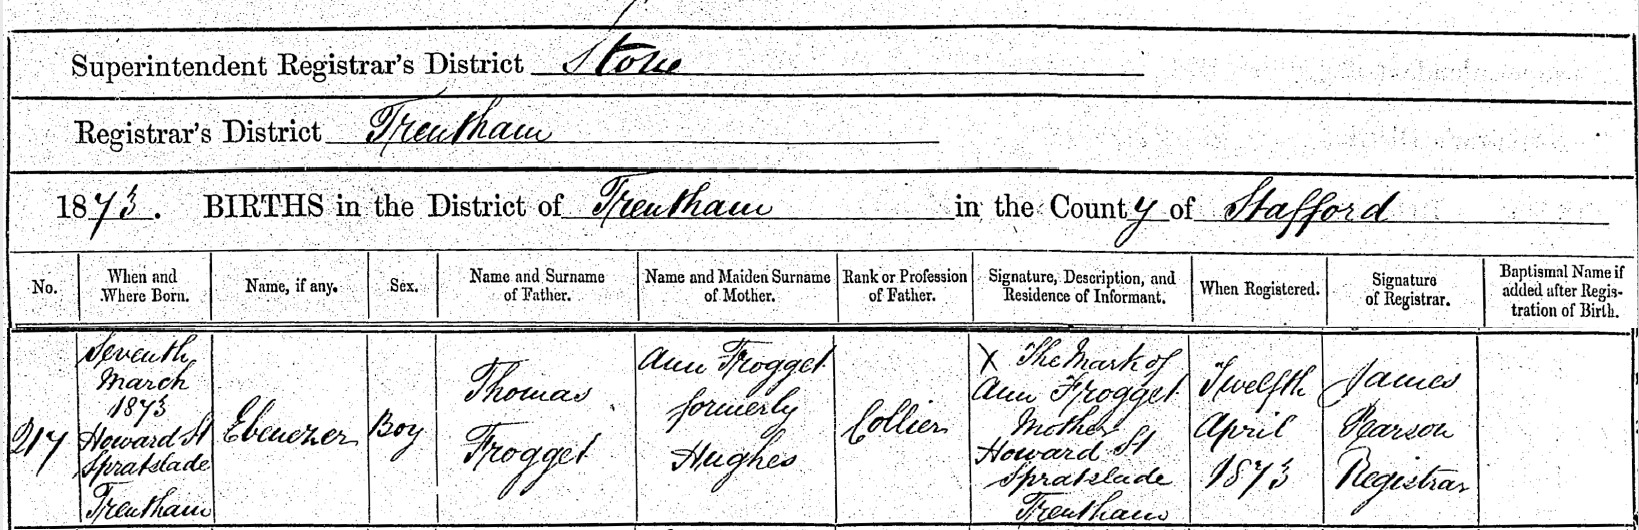 Superintendent Registrar's District Stone
Registrar's District Trentham
1873. BIRTHS in the District of Trentham in the County of Stafford
No.
When and
Where Born.
Name, if any.
Sex.
Name and Surname
of Father.
Name and Maiden Surname
of Mother.
Rank or Profession
of Father.
Signature, Description, and
Residence of Informant.
When Registered.
Signature
of Registrar.
Baptismal Name if
added after Regis-
tration of Birth.
217
Seventh
March
1873
Howard St
Spratslade
Trentham
Ebenezer
Boy
Thomas
Frogget
Ann Frogget
formerly
Hughes
Collier
X The Mark of
Ann Frogget
Mother
Howard St
Spratslade
Trentham
Twelfth
April
1873
James
Pearson
Registrar